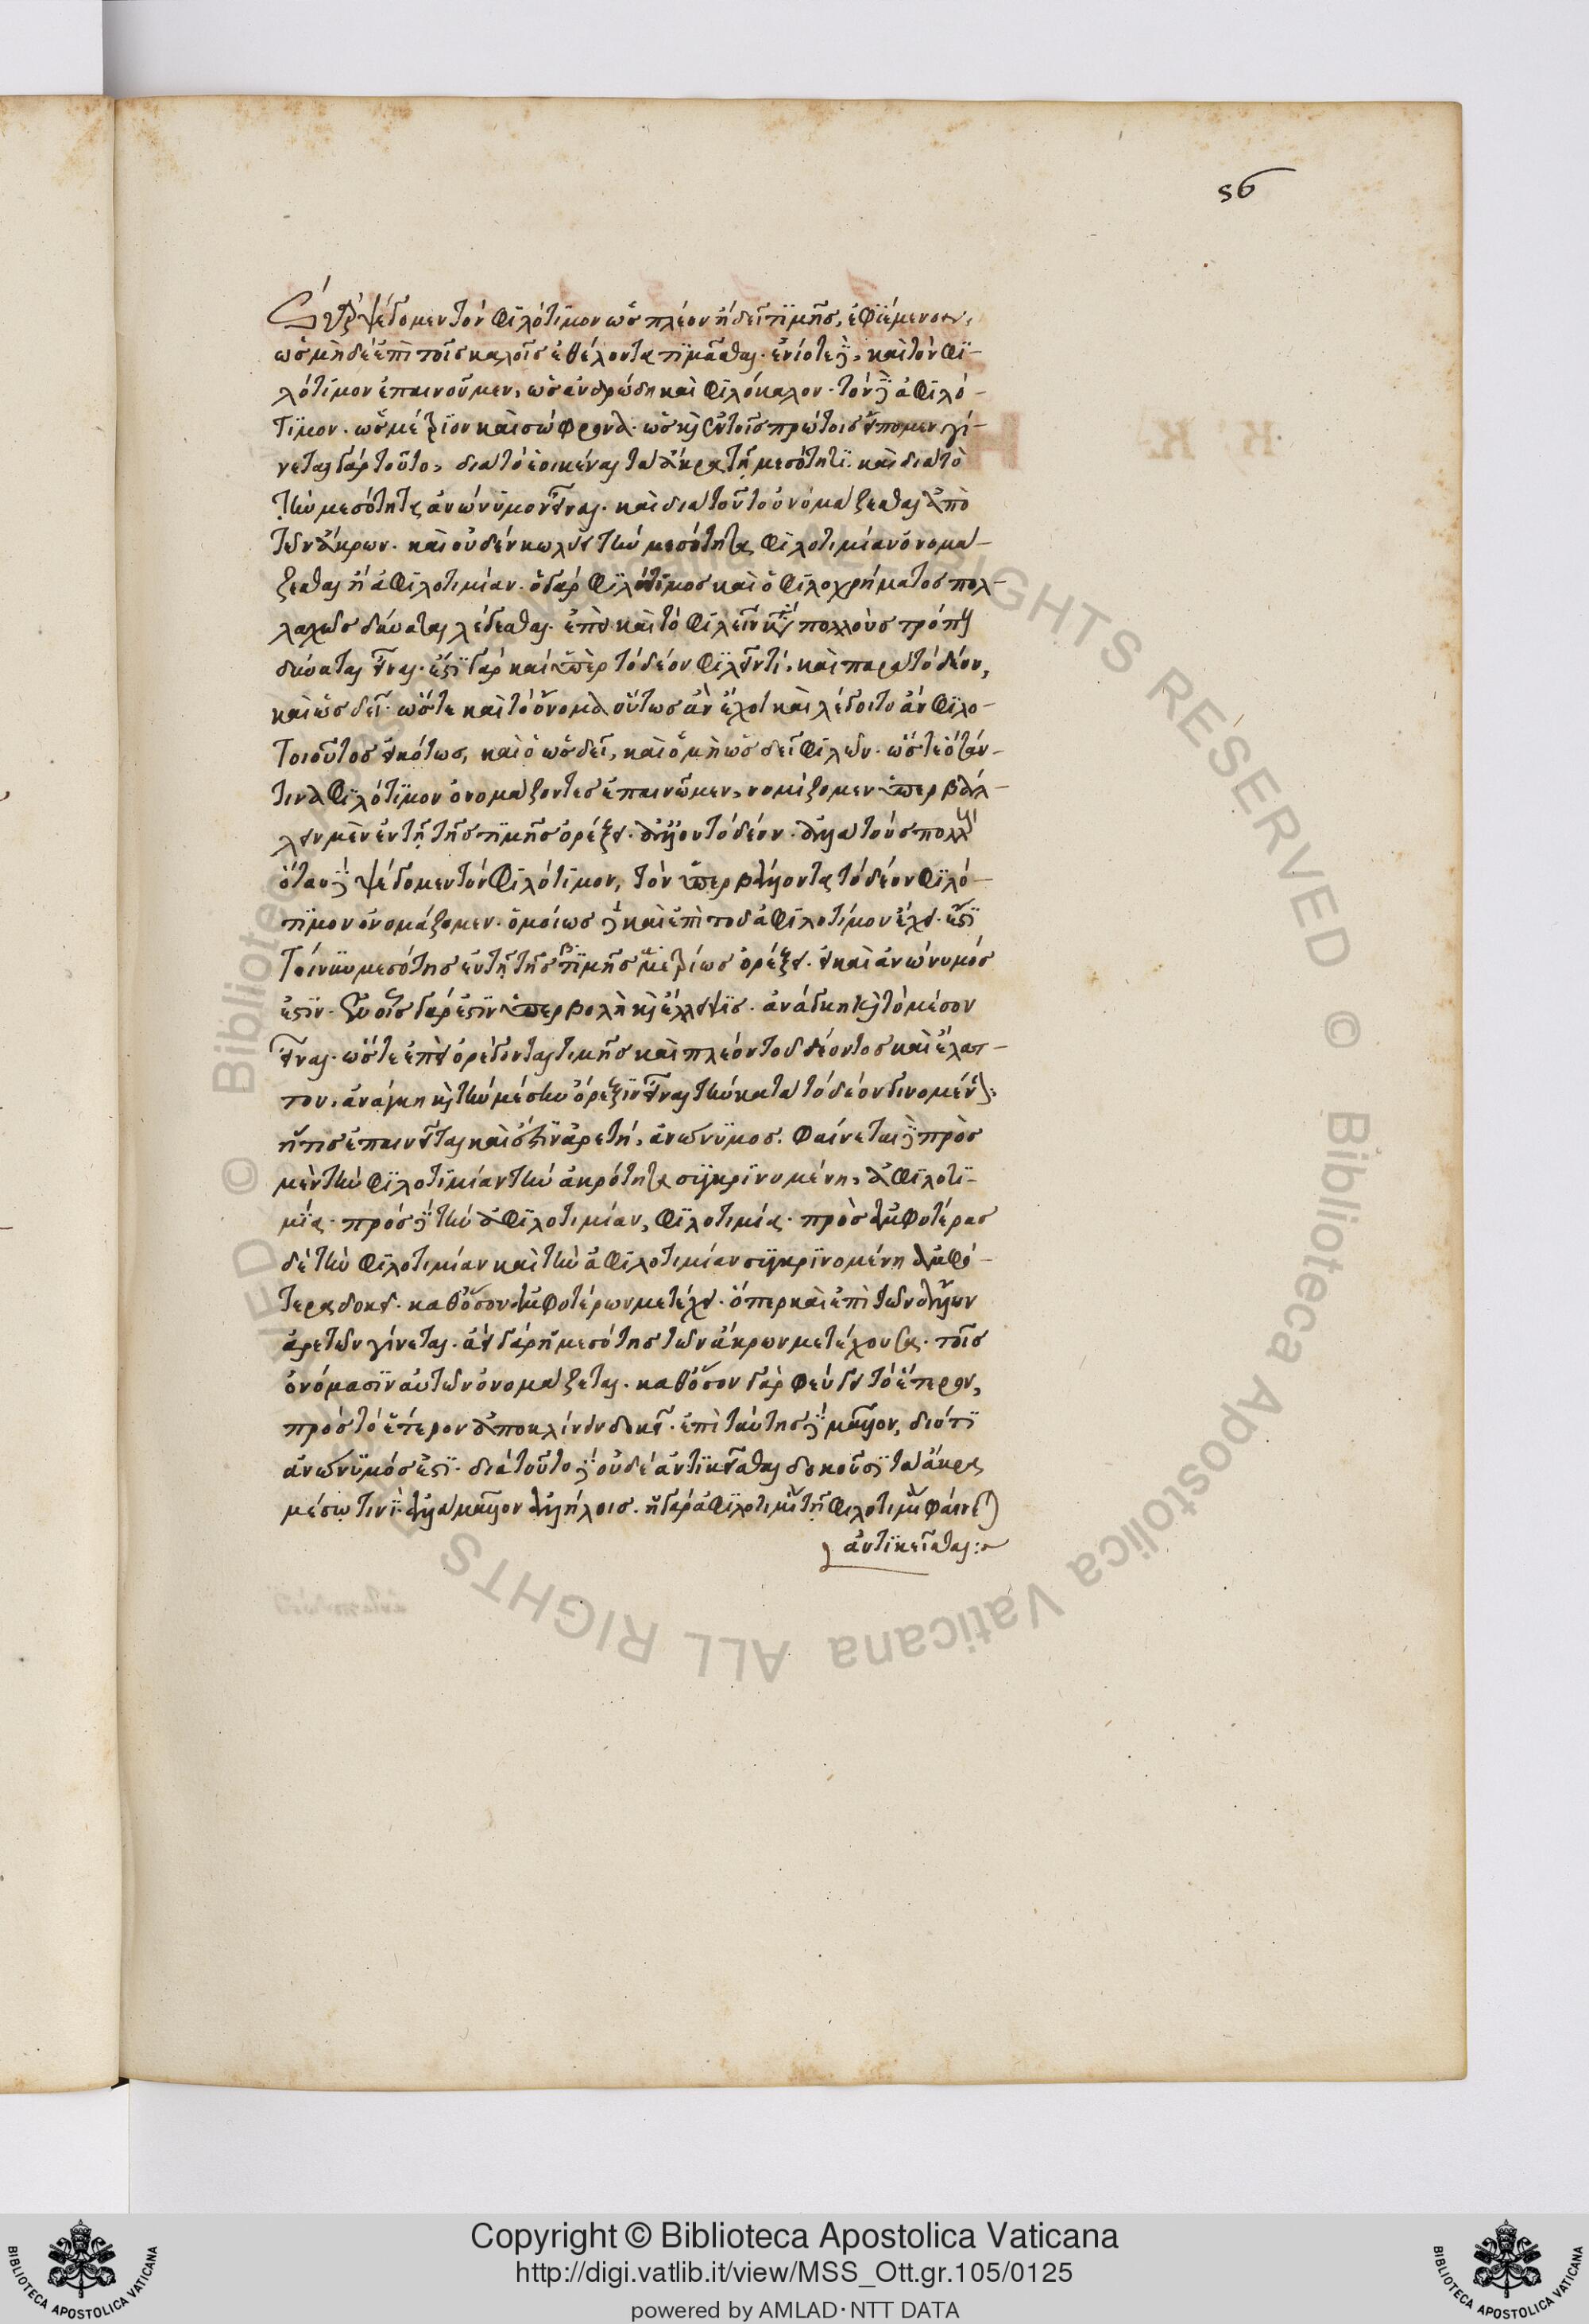 56
ψέγομεν τὸν φιλότιμον ὡς πλέον ἢ δεῖ τιμῆς, ἐφιέμενον,
ὡς μὴδὲ ἐπὶ τοῖς καλοῖς ἐθέλοντα τιμᾶσθαι. ἐνίοτε δὲ, καὶ τὸν φι-
λότιμον ἐπαινοῦμεν, ὡς ἀνδρώδη καὶ φιλόκαλον. τὸν δὲ ἀφιλό-
τιμον. ὡς μέτριον καὶ σώφρονα. ὡς καὶ ἐν τοῖς πρώτοις εἴπομεν. γί-
νεται γὰρ τοῦτο, διὰ τὸ ἐοικέναι τὰ ἄκρα τῇ μεσότητι. καὶ διὰ τὸ
τὴν μεσότητα ἀνώνυμον εἶναι. καὶ διὰ τοῦτο ὀνομάζεσθαι ἀπὸ
τῶν ἄκρων. καὶ οὐδὲν κωλύει τὴν μεσότητα φιλοτιμίαν ὀνομά-
ζεσθαι ἢ ἀφιλοτιμίαν. ὁ γὰρ φιλότιμος καὶ ὁ φιλοχρήματος πολ-
λαχῶς δύναται λέγεσθαι. ἐπεὶ καὶ τὸ φιλεῖν κατὰ πολλοὺς τρόπους
δύναται εἶναι. ἔστι γὰρ καὶ ὑπὲρ τὸ δέον φιλεῖν τί, καὶ παρὰ τὸ δέον,
καὶ ὡς δεῖ. ὥστε καὶ τὸ ὄνομα οὕτως ἂν ἔχοι καὶ λέγοιτο ἂν φιλο-
τοιοῦτος εἰκότως, καὶ ὁ ὡς δεῖ, καὶ ὁ μὴ ὡς δεῖ φιλῶν. ὥστε ὅταν
τινὰ φιλότιμον ὀνομάζοντες ἐπαινῶμεν, νομίζομεν ὑπερβάλ-
λειν μὲν ἐν τῇ τῆς τιμῆς ὀρέξει. ἀλλ' οὐ τὸ δέον. ἀλλὰ τοὺς πολλούς
ὅταν δὲ ψέγομεν τὸν φιλότιμον, τὸν ὑπερβάλλοντα τὸ δέον φιλό-
τιμον ὀνομάζομεν. ὁμοίως δὲ καὶ ἐπὶ τοῦ ἀφιλοτίμου ἔχει. ἔστι
τοίνυν μεσότης ἐν τῇ τῆς τιμῆς μετρίως ὀρέξει. εἰ καὶ ἀνώνυμός
ἐστιν. ἐν οἷς γὰρ ἐστιν ὑπερβολὴ καὶ ἔλλειψις. ἀνάγκη καὶ τὸ μέσον
εἶναι. ὥστε ἐπεὶ ὀρέγονται τιμῆς καὶ πλέον τοῦ δέοντος καὶ ἔλατ-
τον, ἀνάγκη καὶ τὴν μέσην ὄρεξιν εἶναι τὴν κατὰ τὸ δέον γινομένην,
ἥτις ἐπαινεῖται καὶ ἔστιν ἀρετή, ἀνώνυμος. φαίνεται δὲ πρὸς
μὲν τὴν φιλοτιμίαν τὴν ἀκρότητα συγκρινομένη, ἀφιλοτι-
μία. πρὸς δὲ τὴν ἀφιλοτιμίαν, φιλοτιμία. πρὸς ἀμφοτέρας
δὲ τὴν φιλοτιμίαν καὶ τὴν ἀφιλοτιμίαν συγκρινομένη ἀμφό-
τερα δοκεῖ. καθ' ὅσον ἀμφοτέρων μετέχει. ὅπερ καὶ ἐπὶ τῶν ἄλλων
ἀρετῶν γίνεται. ἀεὶ γὰρ ἡ μεσότης τῶν ἄκρων μετέχουσα. τοῖς
ὀνόμασιν αὐτῶν ὀνομάζεται. καθ' ὅσον γὰρ φεύγει τὸ ἕτερον,
πρὸς τὸ ἕτερον ἀποκλίνειν δοκεῖ. ἐπὶ ταύτης δὲ μᾶλλον, διότι
ἀνώνυμός ἐστι. διὰ τοῦτο δὲ οὐδὲ ἀντικεῖσθαι δοκοῦσι τὰ ἄκρα
μέσῳ τινί. ἀλλὰ μᾶλλον ἀλλήλοις. ἡ γὰρ ἀφιλοτιμία τῇ φιλοτιμίᾳ φαίνεται
ἀντικεῖσθαι:~
© Biblioteca Apostolica Vaticana ALL RIGHTS RESERVED
Copyright © Biblioteca Apostolica Vaticana
http://digi.vatlib.it/view/MSS_Ott.gr.105/0125
powered by AMLAD·NTT DATA
BIBLIOTECA APOSTOLICA VATICANA
BIBLIOTECA APOSTOLICA VATICANA